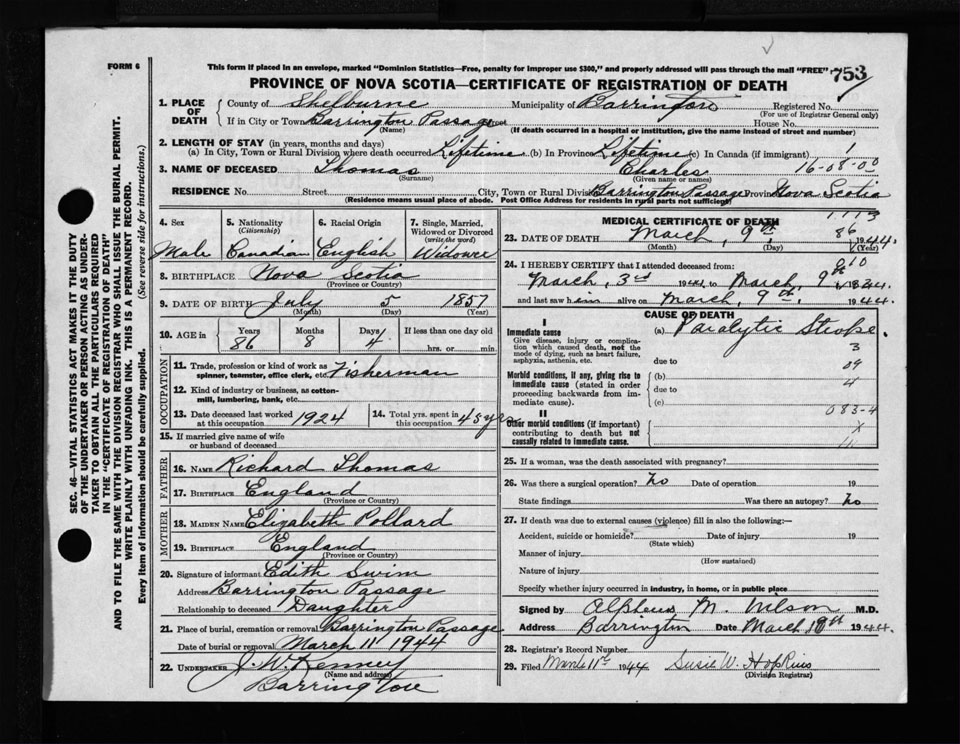 FORM 6
This form if placed in an envelope, marked "Dominion Statistics—Free, penalty for improper use $300," and properly addressed will pass through the mail "FREE"
753
PROVINCE OF NOVA SCOTIA—CERTIFICATE OF REGISTRATION OF DEATH
1. PLACE OF DEATH County of Shelburne Municipality of Barrington Registered No.
(For use of Registrar General only)
If in City or Town Barrington Passage Street House No.
(Name) (If death occurred in a hospital or institution, give the name instead of street and number)
2. LENGTH OF STAY (in years, months and days)
(a) In City, Town or Rural Division where death occurred Lifetime (b) In Province Lifetime (c) In Canada (if immigrant) 1
3. NAME OF DECEASED Thomas Charles 16-08-00
(Surname) (Given name or names)
RESIDENCE No. Street City, Town or Rural Division Barrington Passage Province Nova Scotia
(Residence means usual place of abode. Post Office Address for residents in rural parts not sufficient)
SEC. 46—VITAL STATISTICS ACT MAKES IT THE DUTY
OF THE UNDERTAKER OR PERSON ACTING AS UNDER-
TAKER TO OBTAIN ALL THE PARTICULARS REQUIRED
IN THE "CERTIFICATE OF REGISTRATION OF DEATH"
AND TO FILE THE SAME WITH THE DIVISION REGISTRAR WHO SHALL ISSUE THE BURIAL PERMIT.
WRITE PLAINLY WITH UNFADING INK. THIS IS A PERMANENT RECORD.
Every item of information should be carefully supplied. (See reverse side for instructions.)
4. Sex 5. Nationality 6. Racial Origin 7. Single, Married,
(Citizenship) Widowed or Divorced
(write the word)
Male Canadian English Widower
8. BIRTHPLACE Nova Scotia
(Province or Country)
9. DATE OF BIRTH July 5 1857
(Month) (Day) (Year)
10. AGE in Years Months Days If less than one day old
86 8 4 hrs. or min.
OCCUPATION
11. Trade, profession or kind of work as
spinner, teamster, office clerk, etc. Fisherman
12. Kind of industry or business, as cotton-
mill, lumbering, bank, etc.
13. Date deceased last worked at this occupation 1924 14. Total yrs. spent in this occupation 45 yrs
15. If married give name of wife
or husband of deceased
FATHER
16. NAME Richard Thomas
17. BIRTHPLACE England
(Province or Country)
MOTHER
18. MAIDEN NAME Elizabeth Pollard
19. BIRTHPLACE England
(Province or Country)
20. Signature of informant Edith Swim
Address Barrington Passage
Relationship to deceased Daughter
21. Place of burial, cremation or removal Barrington Passage
Date of burial or removal March 11 1944
22. UNDERTAKER J. W. Kenney
(Name and address)
Barrington
MEDICAL CERTIFICATE OF DEATH
1113
86
23. DATE OF DEATH March, 9th 1944.
(Month) (Day) (Year)
24. I HEREBY CERTIFY that I attended deceased from: 010
March, 3rd 1944 to March, 9th 1944.
and last saw him alive on March, 9th, 1944.
CAUSE OF DEATH
I
Immediate cause (a) Paralytic Stroke.
Give disease, injury or complica-
tion which caused death, not the
mode of dying, such as heart failure,
asphyxia, asthenia, etc.
3
due to 09
Morbid conditions, if any, giving rise to
immediate cause (stated in order
proceeding backwards from im-
mediate cause).
(b) 4
due to
(c) 083-4
II
Other morbid conditions (if important)
contributing to death but not
causally related to immediate cause.
X
25. If a woman, was the death associated with pregnancy?
26. Was there a surgical operation? No Date of operation 19
State findings Was there an autopsy? No
27. If death was due to external causes (violence) fill in also the following:—
Accident, suicide or homicide? Date of injury 19
(State which)
Manner of injury
(How sustained)
Nature of injury
Specify whether injury occurred in industry, in home, or in public place
Signed by Alpheus M. Wilson M.D.
Address Barrington Date March 1944.
28. Registrar's Record Number
29. Filed March 11th 1944 Susie W. Hopkins
(Division Registrar)